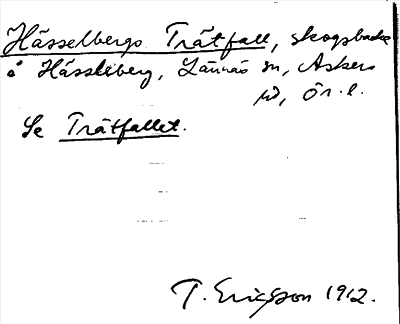 Hässelbergs Trätfall, skogsbacke
å Hässleberg, Lännäs sn, Askers
hd, Ör. l.
Se Trätfallet.
T. Ericsson 1912.